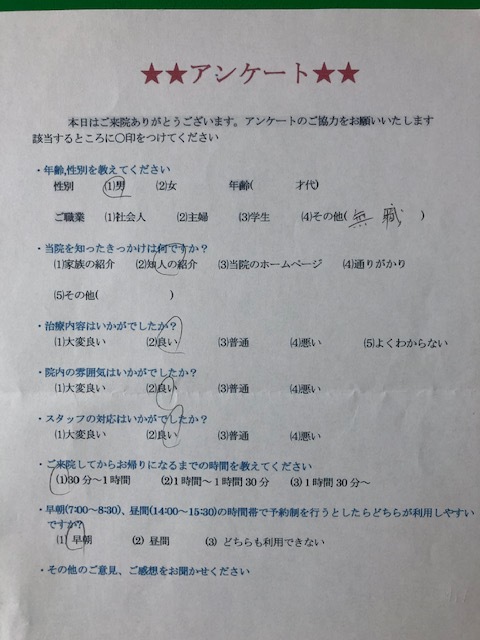 ★★アンケート★★
本日はご来院ありがとうございます。アンケートのご協力をお願いいたします
該当するところに〇印をつけてください
・年齢,性別を教えてください
性別 (1)男 (2)女 年齢( 才代)
ご職業 (1)社会人 (2)主婦 (3)学生 (4)その他(無職 )
・当院を知ったきっかけは何ですか？
(1)家族の紹介 (2)知人の紹介 (3)当院のホームページ (4)通りがかり
(5)その他( )
・治療内容はいかがでしたか？
(1)大変良い (2)良い (3)普通 (4)悪い (5)よくわからない
・院内の雰囲気はいかがでしたか？
(1)大変良い (2)良い (3)普通 (4)悪い
・スタッフの対応はいかがでしたか？
(1)大変良い (2)良い (3)普通 (4)悪い
・ご来院してからお帰りになるまでの時間を教えてください
(1)30分～1時間 (2)1時間～1時間30分 (3)1時間30分～
・早朝(7:00～8:30)、昼間(14:00～15:30)の時間帯で予約制を行うとしたらどちらが利用しやすい
ですか？
(1) 早朝 (2) 昼間 (3) どちらも利用できない
・その他のご意見、ご感想をお聞かせください